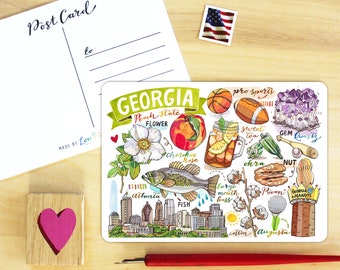 Post Card
to
MADE BY
GEORGIA
Peach State
FLOWER
Cherokee
Rose
pro sports
sweet
tea
GEM
okra
NUT
Pecan
Atlanta
FISH
large
mouth
bass
cotton
Augusta